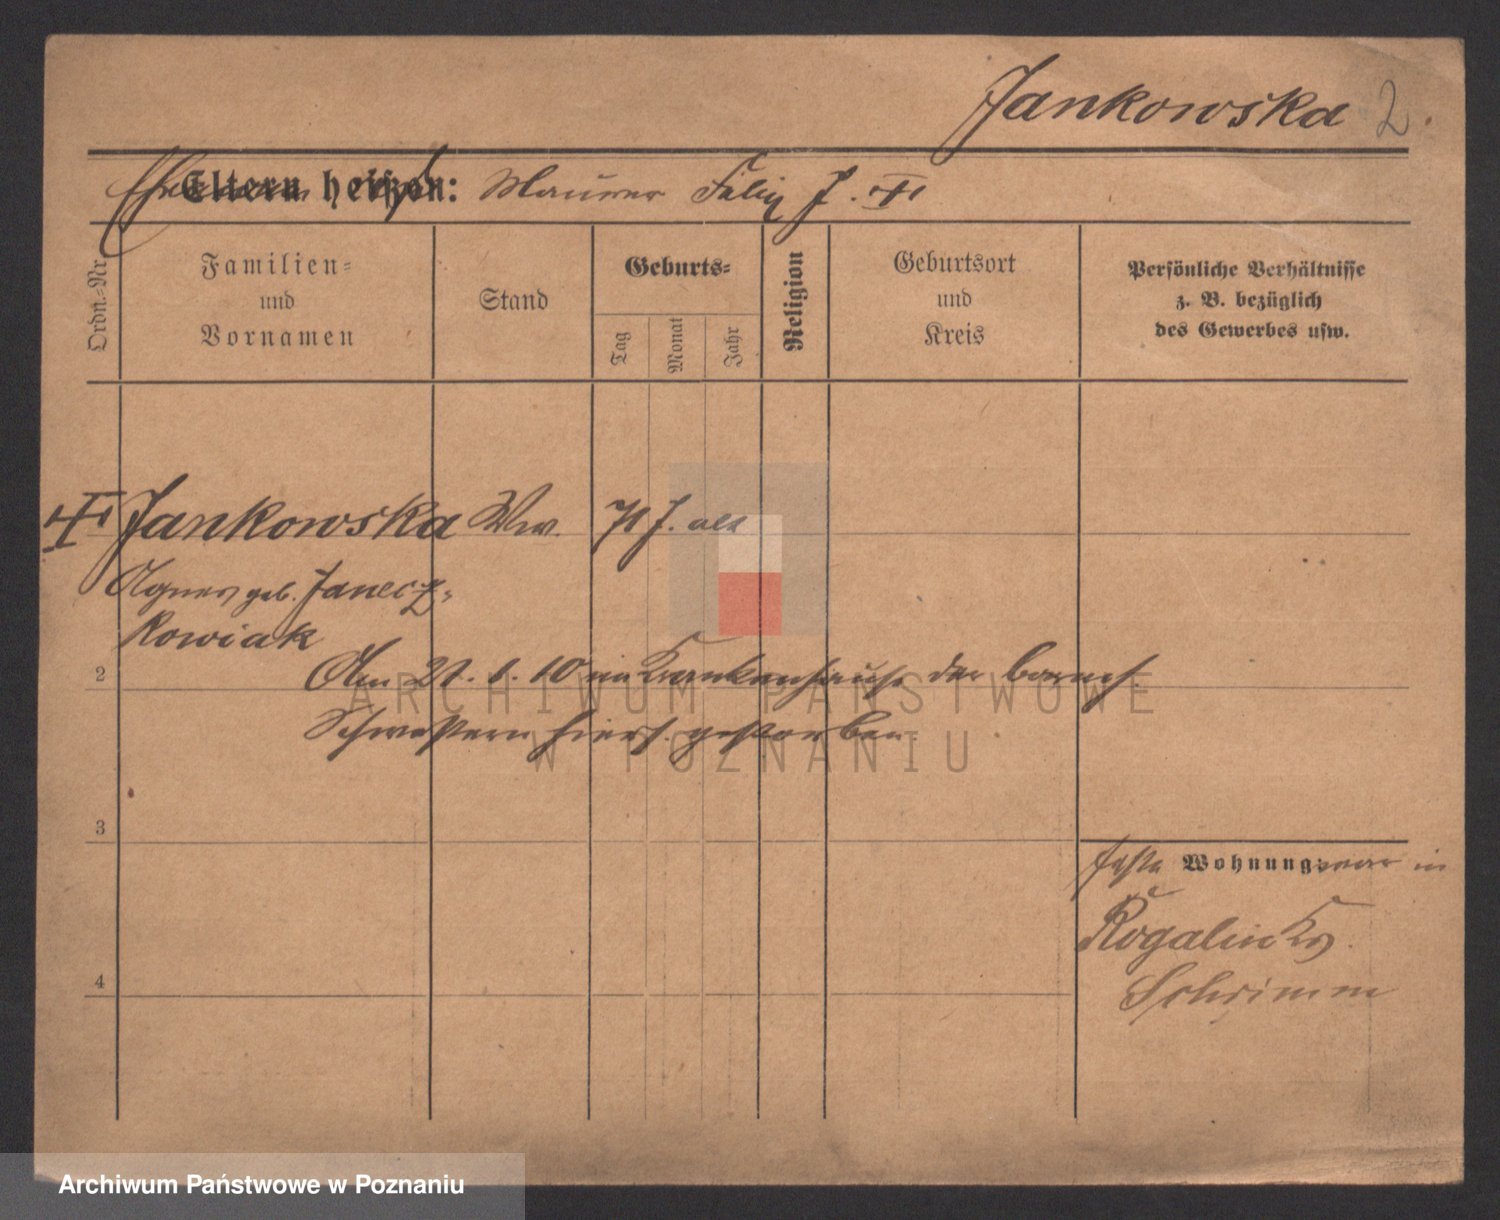 Jankowska 2.
Eltern heißen: Maurer Felix J.
Ordn.-Nr.
Familien-
und
Vornamen
Stand
Geburts-
Tag
Monat
Jahr
Religion
Geburtsort
und
Kreis
Persönliche Verhältnisse
z. B. bezüglich
des Gewerbes usw.
Jankowska Ww. J. alt
Agnes geb. Janecz-
kowiak
2
Am 21. 6. 10 im Krankenhause der barmh.
Schwestern hiers. gestorben
ARCHIWUM PAŃSTWOWE
W POZNANIU
3
feste Wohnung: war in
Rogalin Krs.
Schrimm
4
Archiwum Państwowe w Poznaniu